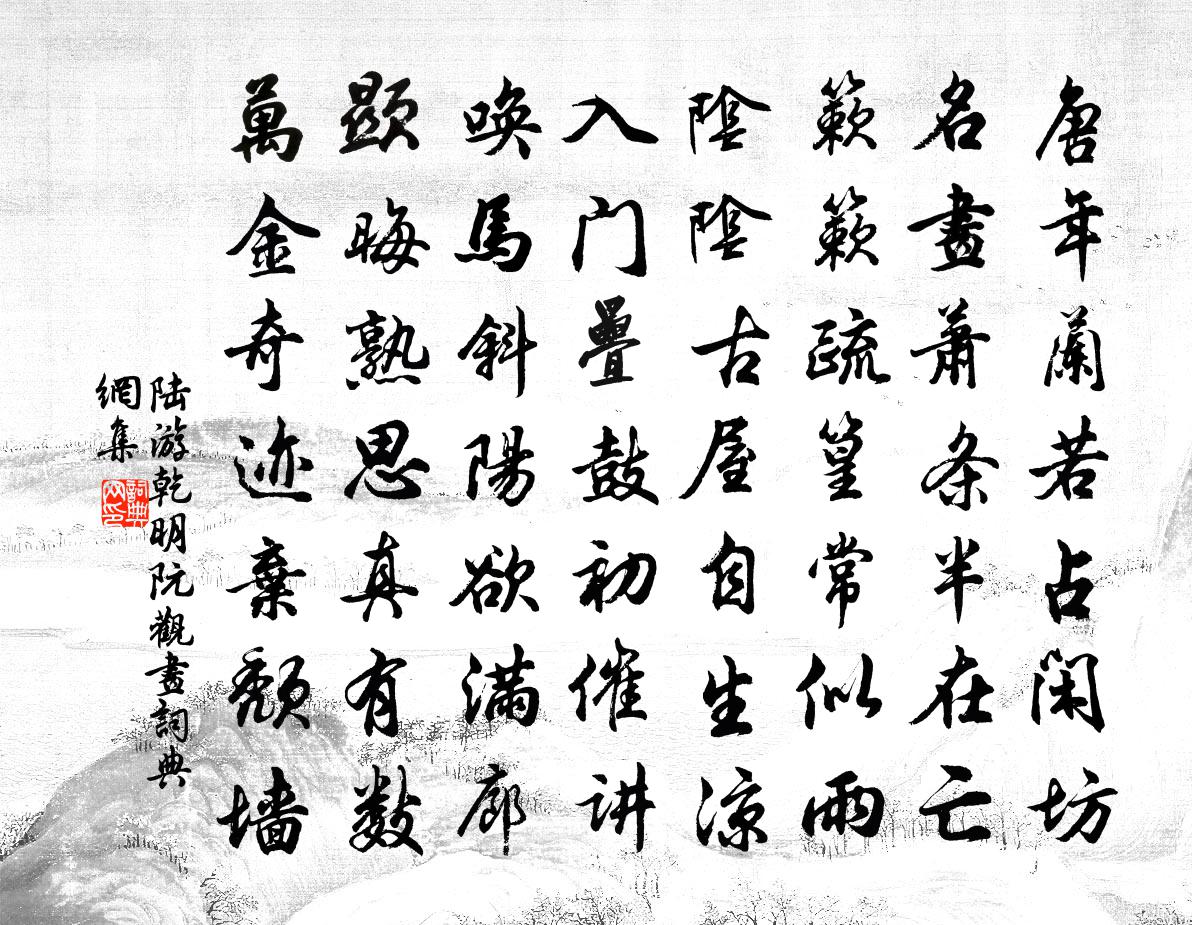 唐年蘭若占閑坊
名畫蕭条半在亡
簌簌疏篁常似雨
陰陰古屋自生涼
入门疊鼓初催讲
喚馬斜陽欲满廊
顯晦熟思真有數
萬金奇迹棄頹墙
陆游乾明阮觀畫詞典
網集
詞典
网印